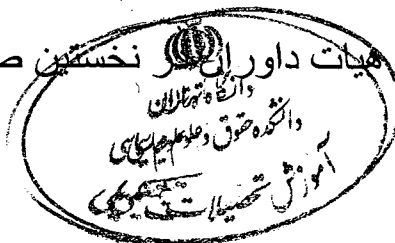 هیات داوران در نخستین
دانشگاه تهران
دانشکده حقوق و علوم سیاسی
آموزش تحصیلات تکمیلی